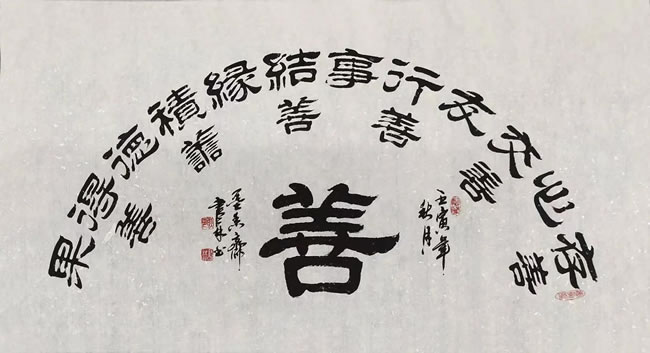 存善心
交善友
行善事
結善緣
積善德
得善果
善
壬寅年
秋月